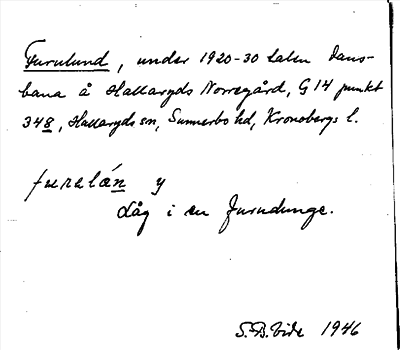 Furulund, under 1920-30 talen dans-
bana å Hallaryds Norregård, G 14 punkt
348, Hallaryds sn, Sunnerbo hd, Kronobergs l.
furalán y
Låg i en furudunge.
S.B. Vide 1946